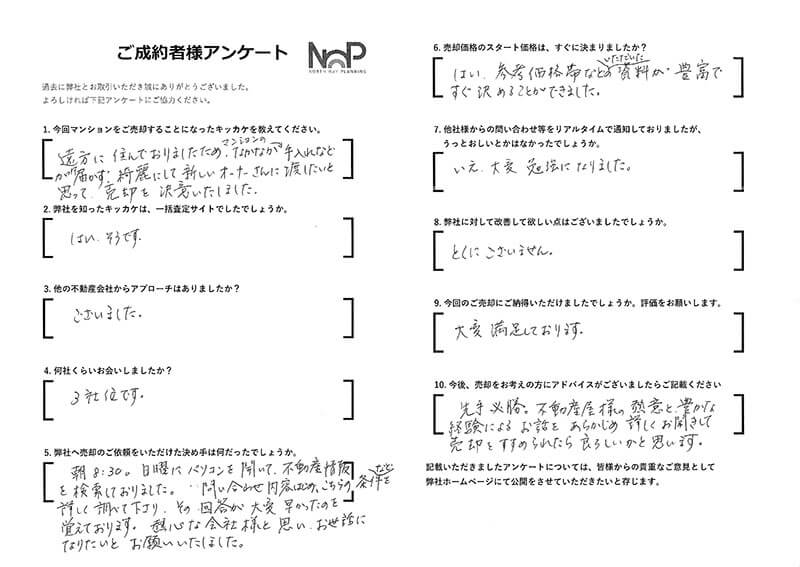 ご成約者様アンケート
NBP
NORTH BAY PLANNING
過去に弊社とお取引いただき誠にありがとうございました。
よろしければ下記アンケートにご協力ください。
1. 今回マンションをご売却することになったキッカケを教えてください。
遠方に住んでおりましたため、マンションのなかなか手入れなど
が届かず、綺麗にして新しいオーナーさんに渡したいと
思って、売却を決意いたしました。
2. 弊社を知ったキッカケは、一括査定サイトでしたでしょうか。
はい、そうです。
3. 他の不動産会社からアプローチはありましたか？
ございました。
4. 何社くらいお会いしましたか？
3社位です。
5. 弊社へ売却のご依頼をいただけた決め手は何だったでしょうか。
朝8:30。日曜にパソコンを開いて、不動産情報
を検索しておりました。問い合わせ内容はじめ、こちらの条件などを
詳しく調べて下さり、その回答が大変早かったのを
覚えております。熱心な会社様と思い、お世話に
なりたいとお願いいたしました。
6. 売却価格のスタート価格は、すぐに決まりましたか？
はい、参考価格帯などのいただいた資料が豊富で
すぐ決めることができました。
7. 他社様からの問い合わせ等をリアルタイムで通知しておりましたが、
うっとおしいとかはなかったでしょうか。
いえ、大変勉強になりました。
8. 弊社に対して改善して欲しい点はございましたでしょうか。
とくにございません。
9. 今回のご売却にご納得いただけましたでしょうか。評価をお願いします。
大変満足しております。
10. 今後、売却をお考えの方にアドバイスがございましたらご記載ください
先手必勝。不動産屋様の熱意と、豊かな
経験によるお話をあらかじめ詳しくお聞きして
売却をすすめられたら良ろしいかと思います。
記載いただきましたアンケートについては、皆様からの貴重なご意見として
弊社ホームページにて公開をさせていただきたいと存じます。